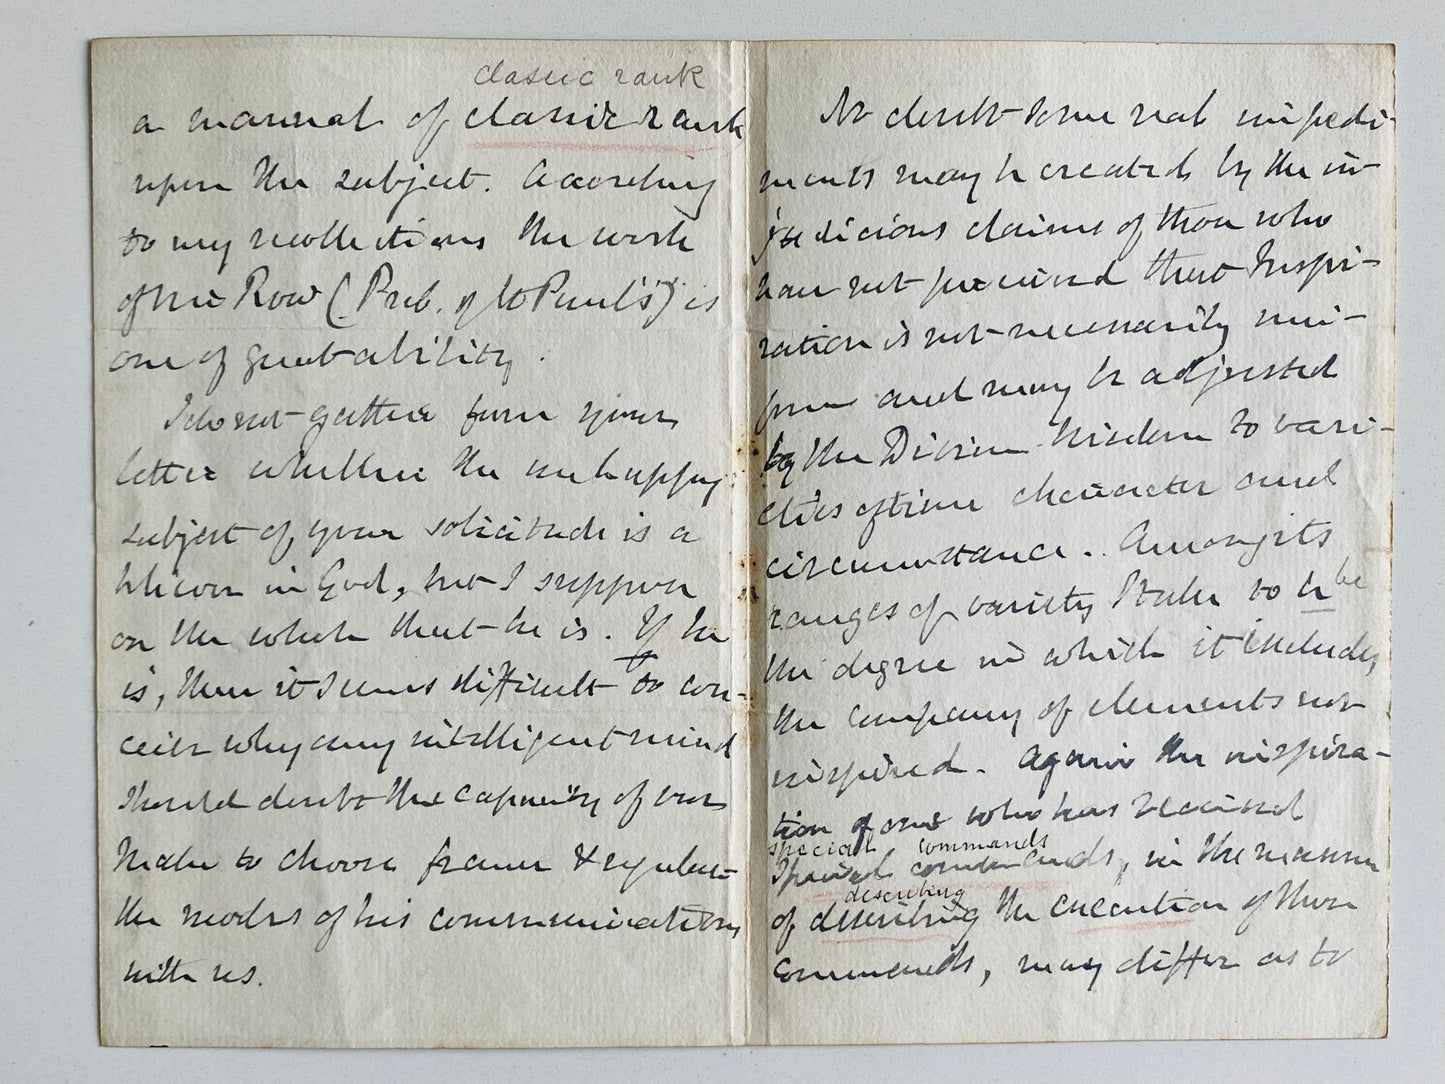 classic rank
a manual of classic rank
upon the subject. According
to my recollections the work
of Mr Row (Preb. of St Paul's) is
one of great ability.
I do not gather from your
letter whether the unhappy
subject of your solicitude is a
believer in God, but I suppose
on the whole that he is. If he
is, then it seems difficult to con-
ceive why any intelligent mind
should doubt the capacity of our
Maker to choose frame & regulate
the modes of his communications
with us.
No doubt some real impedi-
ments may be created by the in-
judicious claims of those who
have not perceived that Inspi-
ration is not necessarily uni-
form and may be adjusted
by the Divine Wisdom to vari-
eties of time character and
circumstance. Amongst its
ranges of variety I take to be be
the degree in which it includes
the company of elements not
inspired. Again the inspira-
tion of one who has received
special commands
special commands, in the manner
describing
of describing the execution of those
commands, may differ as to